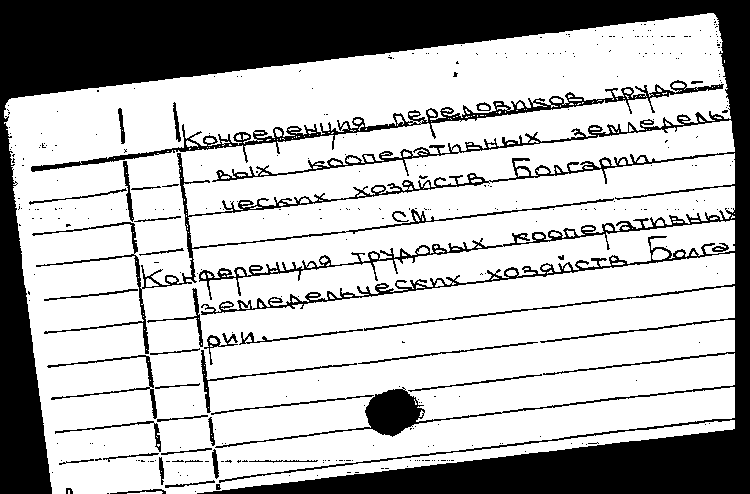 Конференция передовиков трудо-
вых кооперативных земледель-
ческих хозяйств Болгарии.
см.
Конференция трудовых кооперативных
земледельческих хозяйств Болга-
рии.